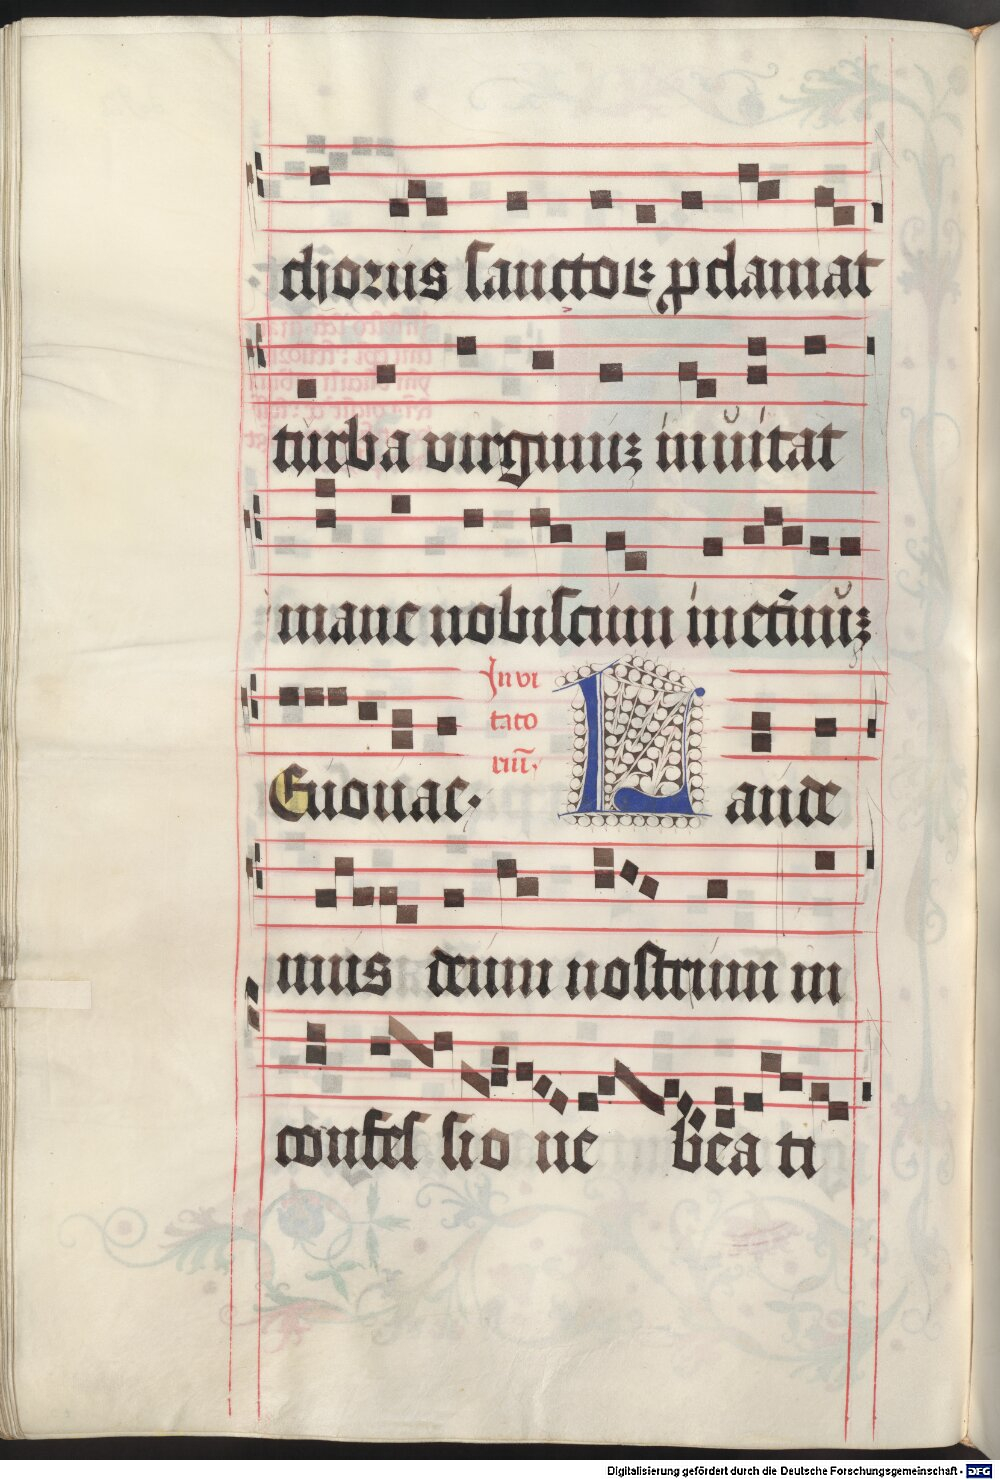 chorus sanctoꝝ ꝓclamat
turba virginuꝫ inuitat
mane nobiscum inet̄nuꝫ
Euouae.
Inui
tato
riū.
Laude
mus deum nostrum in
confes sio ne bea ti
Digitalisierung gefördert durch die Deutsche Forschungsgemeinschaft - DFG